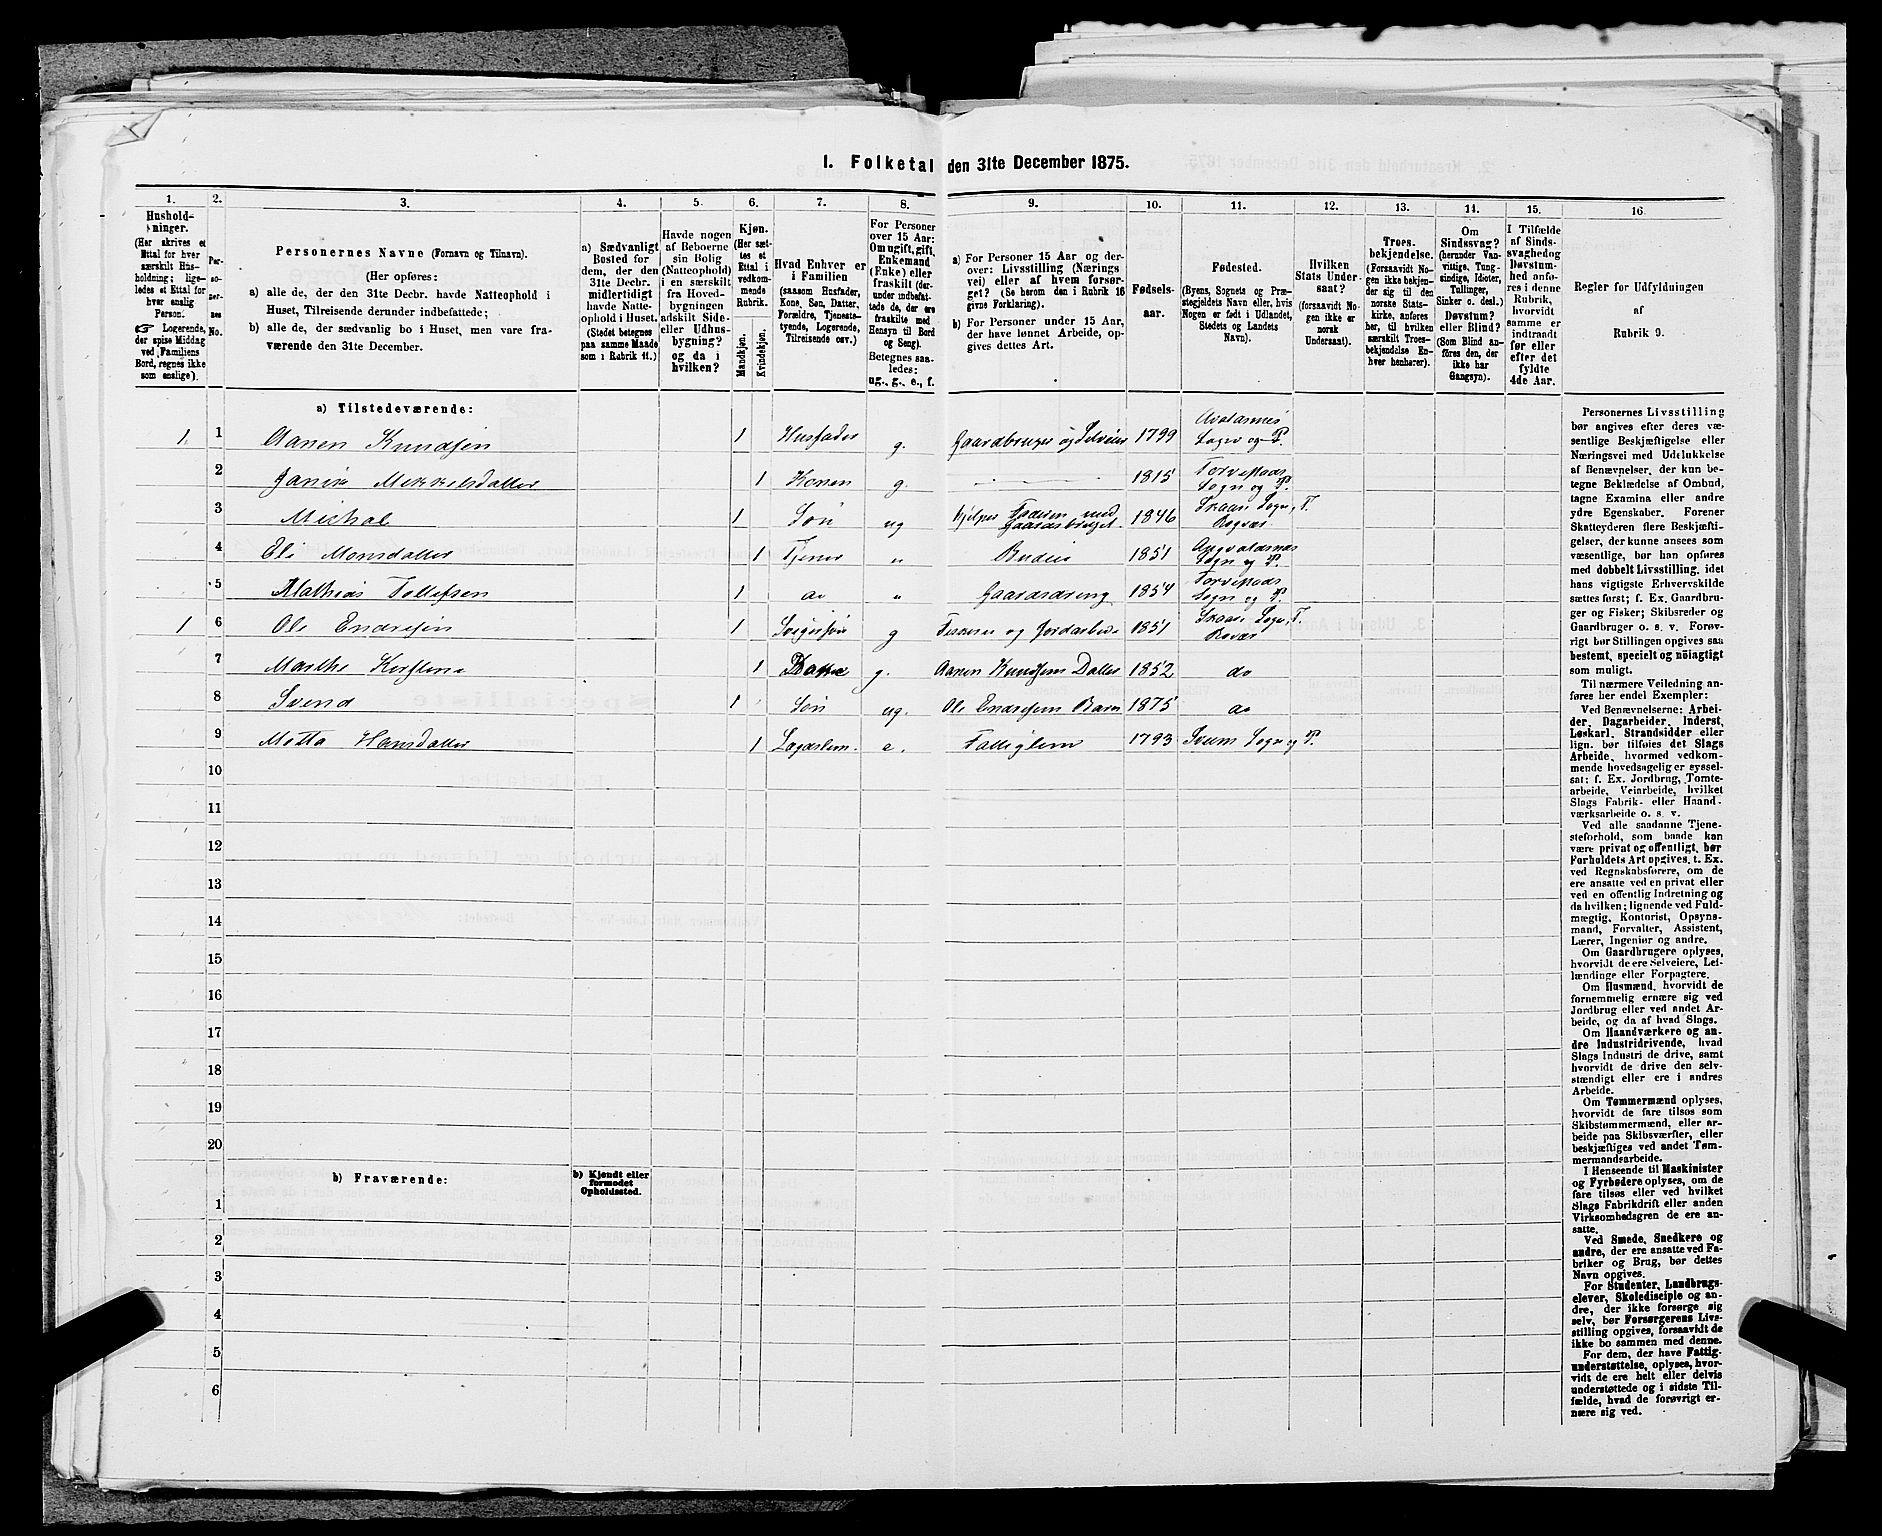 1. Folketal den 31te December 1875.
1. 2. 3. 4. 5. 6. 7. 8. 9. 10. 11. 12. 13. 14. 15. 16
Hushold-
ninger.
(Her skrives et
Ettal for hver
særskilt Hus-
holdning; lige-
ledes et Ettal for
hver enslig
Person.
☞ Logerende,
der spise Middag
ved Familiens
Bord, regnes ikke
som enslige).
Per-
so-
ner-
nes
No.
Personernes Navne (Fornavn og Tilnavn).
(Her opføres:
a) alle de, der den 31te Decbr. havde Natteophold i
Huset, Tilreisende derunder indbefattede;
b) alle de, der sædvanlig bo i Huset, men vare fra-
værende den 31te December.
a) Sædvanligt
Bosted for
dem, der den
31te Decbr.
midlertidigt
havde Natte-
ophold i Huset.
(Stedet betegnes
paa samme Maade
som i Rubrik 11.)
Havde nogen
af Beboerne
sin Bolig
(Natteophold)
i en særskilt
fra Hoved-
bygningen
adskilt Side-
eller Udhus-
bygning?
og da i
hvilken?
Kjøn.
(Her sæt-
tes et
Ettal i
vedkom-
mende
Rubrik.
Mandkjøn.
Kvindekjøn.
Hvad Enhver er
i Familien
(saasom Husfader,
Kone, Søn, Datter,
Forældre, Tjeneste-
tyende, Logerende,
Tilreisende osv.)
For Personer
over 15 Aar:
Om ugift, gift,
Enkemand
(Enke) eller
fraskilt (der-
under indbefat-
tede de, der ere
fraskilte med
Hensyn til Bord
og Seng).
Betegnes saa-
ledes:
ug., g., e., f.
a) For Personer 15 Aar og der-
over: Livsstilling (Nærings-
vei) eller af hvem forsør-
get? (Se herom den i Rubrik 16
givne Forklaring).
b) For Personer under 15 Aar,
der have lønnet Arbeide, op-
gives dettes Art.
Fødsels-
aar.
Fødested.
(Byens, Sognets og Præ-
stegjeldets Navn eller, hvis
Nogen er født i Udlandet,
Stedets og Landets
Navn).
Hvilken
Stats Under-
saat?
(forsaavidt No-
gen ikke er
norsk
Undersaat).
Troes-
bekjendelse.
(Forsaavidt No-
gen ikke bekjen-
der sig til den
norske Stats-
kirke, anføres
her, til hvilken
særskilt Troes-
bekjendelse En-
hver henhører).
Om
Sindssvag?
(herunder Van-
vittige, Tung-
sindige, Idioter,
Tullinger,
Sinker o. desl.)
Døvstum?
eller Blind?
(Som Blind an-
føres den, der
ikke har
Gangsyn).
I Tilfælde
af Sinds-
svaghed og
Døvstum-
hed anfø-
res i denne
Rubrik,
hvorvidt
samme er
indtraadt
før eller
efter det
fyldte
4de Aar.
Regler for Udfyldningen
af
Rubrik 9.
a) Tilstedeværende:
1 1 Aanen Knudsen 1 Husfader g. Gaardbruger og Selveier 1799 Avaldsnes Sogn og P.
2 Mikkelsdatter 1 Konen g. 1815 Torvestad Sogn og P.
3 Michal 1 Søn ug hjelper Faderen med Gaardsbruget 1846 Skaare Sogn, T.
4 Eli Monsdatter 1 Tjener " Budeie 1851 Sogn og P.
5 Mathias Tollefsen 1 do " Gaardsdreng 1854 Torvestad Sogn og P.
1 6 Ole Endresen 1 Svigersøn g Fiskerie og Jordarbeide 1851 Skaare Sogn, T.
7 Marthe 1 g. Aanen Knudsens Datter 1852 do
8 Svend 1 Søn ug. Ole Endresens Barn 1875 do
9 Metta Hansdatter 1 Lægdslem. e. Fattiglem 1793 Sogn og P.
10
11
12
13
14
15
16
17
18
19
20
b) Fraværende:
b) Kjendt eller
formodet
Opholdssted.
1
2
3
4
5
6
Personernes Livsstilling
bør angives efter deres væ-
sentlige Beskjæftigelse eller
Næringsvei med Udelukkelse
af Benævnelser, der kun be-
tegne Beklædelse af Ombud,
tagne Examina eller andre
ydre Egenskaber. Forener
Skatteyderen flere Beskjæfti-
gelser, der kunne ansees som
væsentlige, bør han opføres
med dobbelt Livsstilling, idet
hans vigtigste Erhvervskilde
sættes først; f. Ex. Gaardbru-
ger og Fisker; Skibsreder og
Gaardbruger o. s. v. Forøv-
rigt bør Stillingen opgives saa
bestemt, specielt og nöiagtigt
som muligt.
Til nærmere Veiledning an-
føres her endel Exempler:
Ved Benævnelserne: Arbei-
der, Dagarbeider, Inderst,
Løskarl, Strandsidder eller
lign. bør tilføies det Slags
Arbeide, hvormed vedkom-
mende hovedsagelig er syssel-
sat; f. Ex. Jordbrug, Tomte-
arbeide, Veiarbeide, hvilket
Slags Fabrik- eller Haand-
værksarbeide o. s. v.
Ved alle saadanne Tjene-
steforhold, som baade kan
være privat og offentligt, bør
Forholdets Art opgives, t. Ex.
ved Regnskabsførere, om de
ere ansatte ved en privat eller
ved en offentlig Indretning og
da hvilken; lignende ved Fuld-
mægtig, Kontorist, Opsyns-
mand, Forvalter, Assistent,
Lærer, Ingeniør og andre.
Om Gaardbrugere oplyses,
hvorvidt de ere Selveiere, Lei-
lændinge eller Forpagtere.
Om Husmænd, hvorvidt de
fornemmelig ernære sig ved
Jordbrug eller ved andet Ar-
beide, og da af hvad Slags.
Om Haandværkere og an-
dre Industridrivende, hvad
Slags Industri de drive, samt
hvorvidt de drive den selv-
stændigt eller ere i andres
Arbeide.
Om Tømmermænd oplyses,
hvorvidt de fare tilsøs som
Skibstømmermænd, eller ar-
beide paa Skibsværfter, eller
beskjæftiges ved andet Tøm-
mermandsarbeide.
I Henseende til Maskinister
og Fyrbødere oplyses, om de
fare tilsøs eller ved hvilket
Slags Fabrikdrift eller anden
Virksomhedsgren de ere an-
satte.
Ved Smede, Snedkere og
andre, der ere ansatte ved Fa-
briker og Brug, bør dettes
Navn opgives.
For Studenter, Landbrugs-
elever, Skoledisciple og an-
dre, der ikke forsørge sig
selv, bør Forsørgerens Livs-
stilling opgives, forsaavidt de
ikke bo sammen med denne.
For dem, der have Fattig-
understøttelse, oplyses, hvor-
vidt de ere helt eller delvis
understøttede og i sidste Til-
fælde, hvad de forøvrigt er-
nære sig ved.